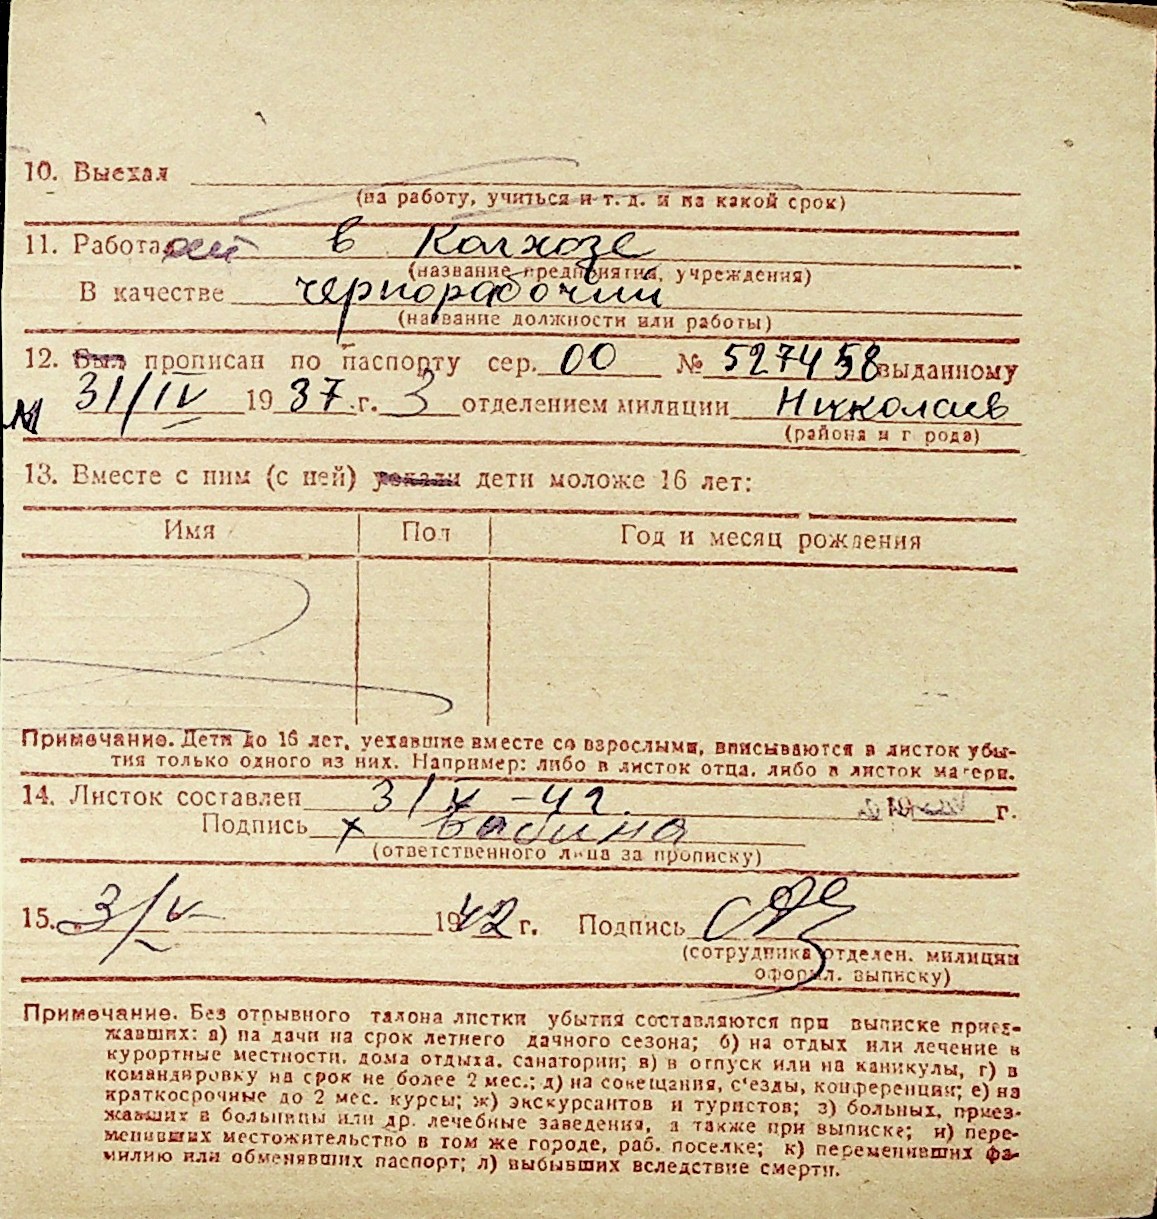 10. Выехал
(на работу, учиться и т. д. и на какой срок)
11. Работает в Колхозе
(название предприятия, учреждения)
В качестве чернорабочий
(название должности или работы)
12. Был прописан по паспорту сер. 00 № 527458 выданному
31/IV 1937 г. 3 отделением милиции Николаев
(района и г рода)
13. Вместе с ним (с ней) уехали дети моложе 16 лет:
Имя Пол Год и месяц рождения
Примечание. Дети до 16 лет, уехавшие вместе со взрослыми, вписываются в листок убы-
тия только одного из них. Например: либо в листок отца, либо в листок матери.
14. Листок составлен 3/V-42. г.
Подпись х Бабина
(ответственного лица за прописку)
15. 3/V 1942 г. Подпись
(сотрудника отделен. милиции
оформл. выписку)
Примечание. Без отрывного талона листки убытия составляются при выписке приез-
жавших: а) на дачи на срок летнего дачного сезона; б) на отдых или лечение в
курортные местности, дома отдыха, санатории; в) в отпуск или на каникулы, г) в
командировку на срок не более 2 мес.; д) на совещания, с'езды, конференции; е) на
краткосрочные до 2 мес. курсы; ж) экскурсантов и туристов; з) больных, приез-
жавших в больницы или др. лечебные заведения, а также при выписке; и) пере-
менивших местожительство в том же городе, раб. поселке; к) переменивших фа-
милию или обменявших паспорт; л) выбывших вследствие смерти.